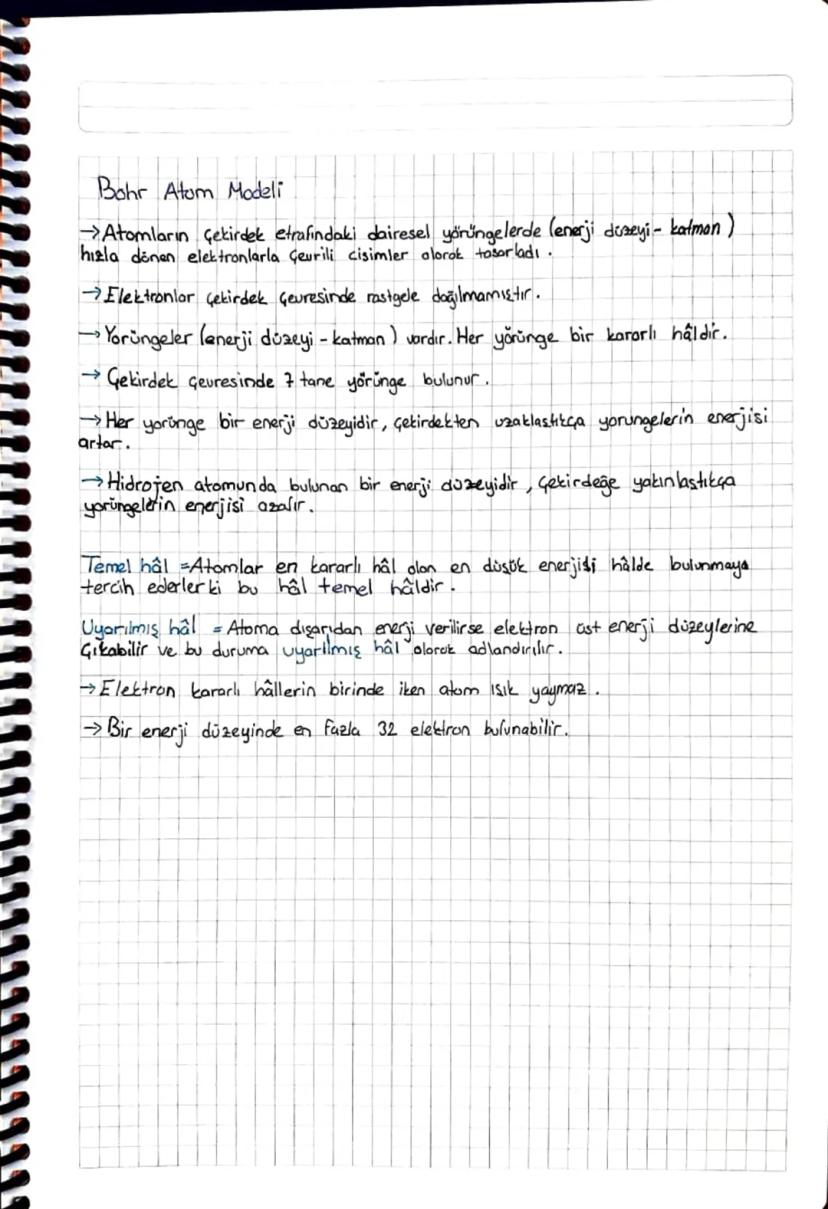 Bohr Atom Modeli
→Atomların çekirdek etrafındaki dairesel yörüngelerde (enerji düzeyi - katman)
hızla dönen elektronlarla çevrili cisimler olarak tasarladı.
→Elektronlar çekirdek çevresinde rastgele dağılmamıştır.
→Yörüngeler (enerji düzeyi - katman) vardır. Her yörünge bir kararlı hâldir.
→ Çekirdek çevresinde 7 tane yörünge bulunur.
→Her yörünge bir enerji düzeyidir, çekirdekten uzaklaştıkça yorungelerin enerjisi
artar.
→Hidrojen atomunda bulunan bir enerji düzeyidir, çekirdeğe yakınlaştıkça
yörüngelerin enerjisi azalır.
Temel hâl =Atomlar en kararlı hâl olan en düşük enerjili hâlde bulunmaya
tercih ederler ki bu hâl temel hâldir.
Uyarılmış hâl = Atoma dışarıdan enerji verilirse elektron üst enerji düzeylerine
çıkabilir ve bu duruma uyarılmış hâl olarak adlandırılır.
→Elektron kararlı hâllerin birinde iken atom ışık yaymaz.
→Bir enerji düzeyinde en fazla 32 elektron bulunabilir.